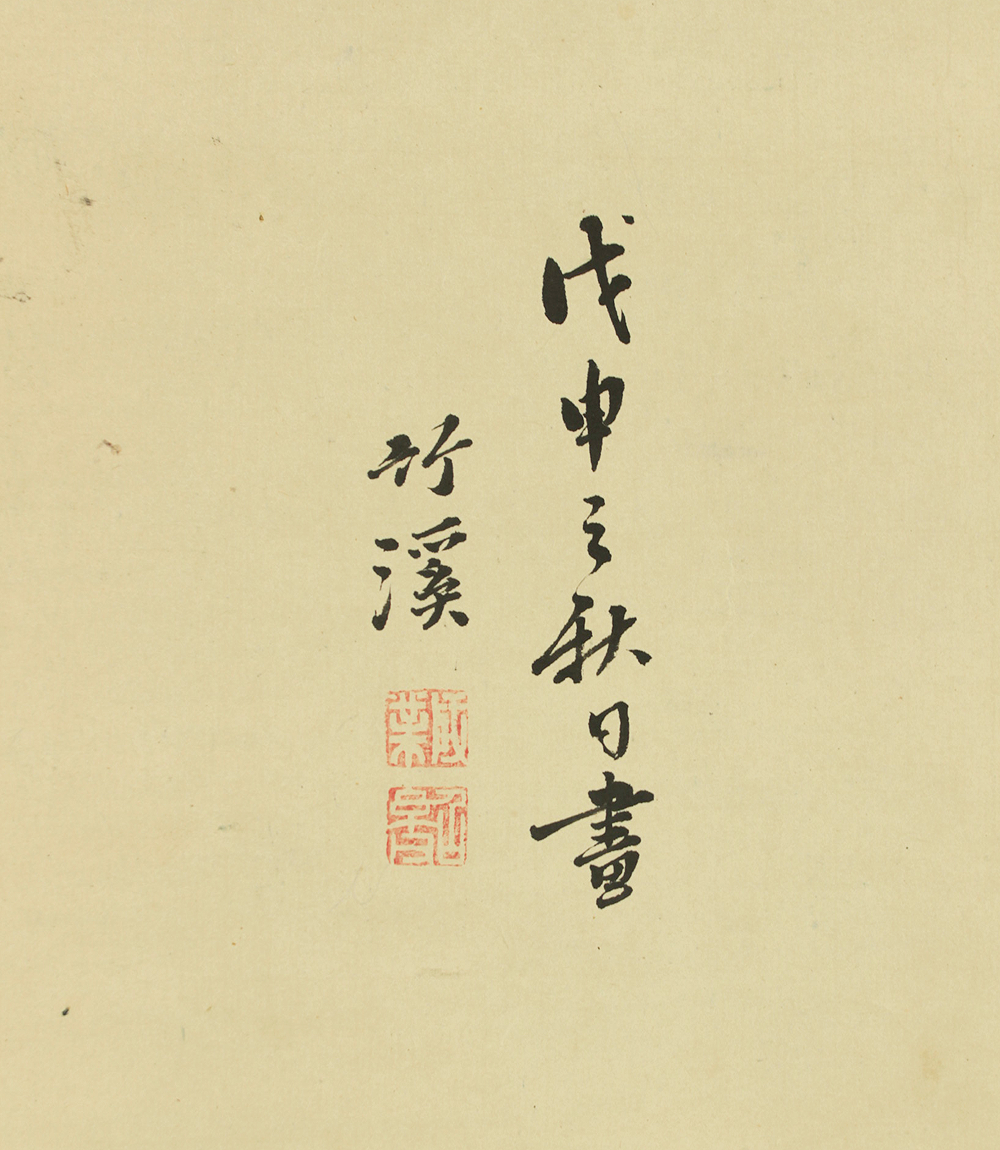 戊申之秋日畫
竹溪